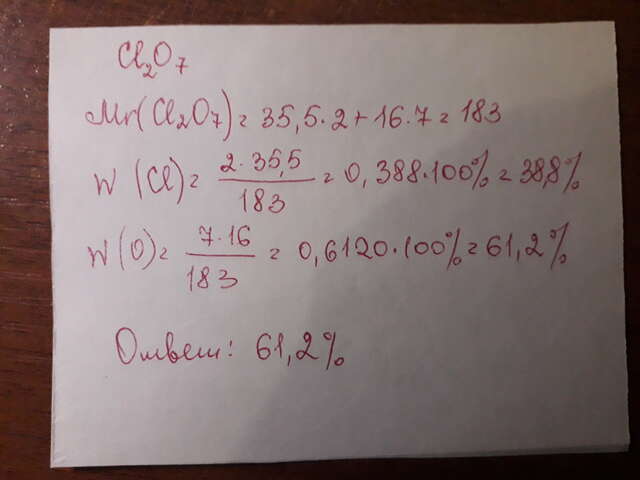 Cl₂O₇
Mr(Cl₂O₇)=35,5·2+16·7=183
W(Cl)=2·35,5/183=0,388·100%=38,8%
W(O)=7·16/183=0,6120·100%=61,2%
Ответ: 61,2%